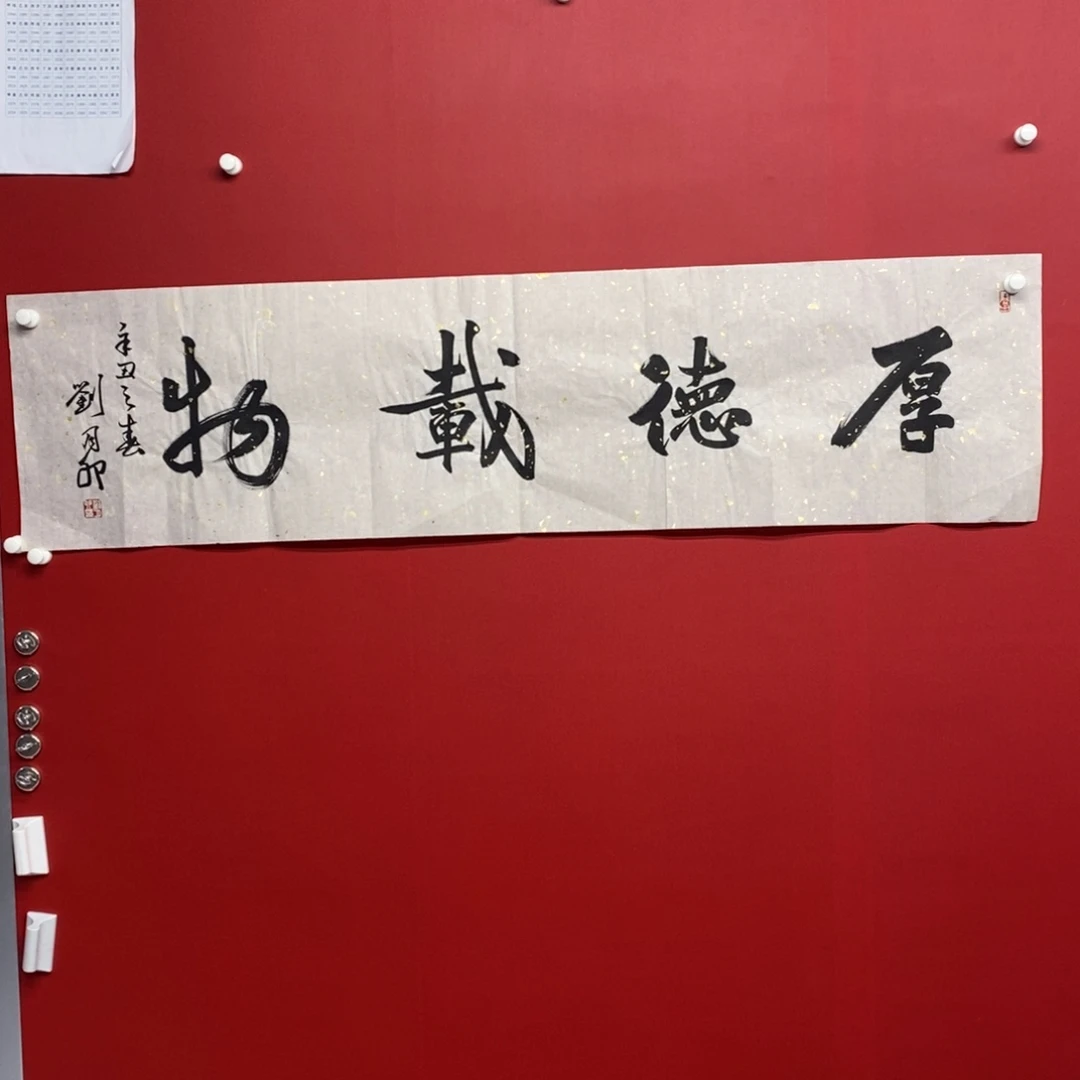 厚德載物
辛丑之春
劉月卯